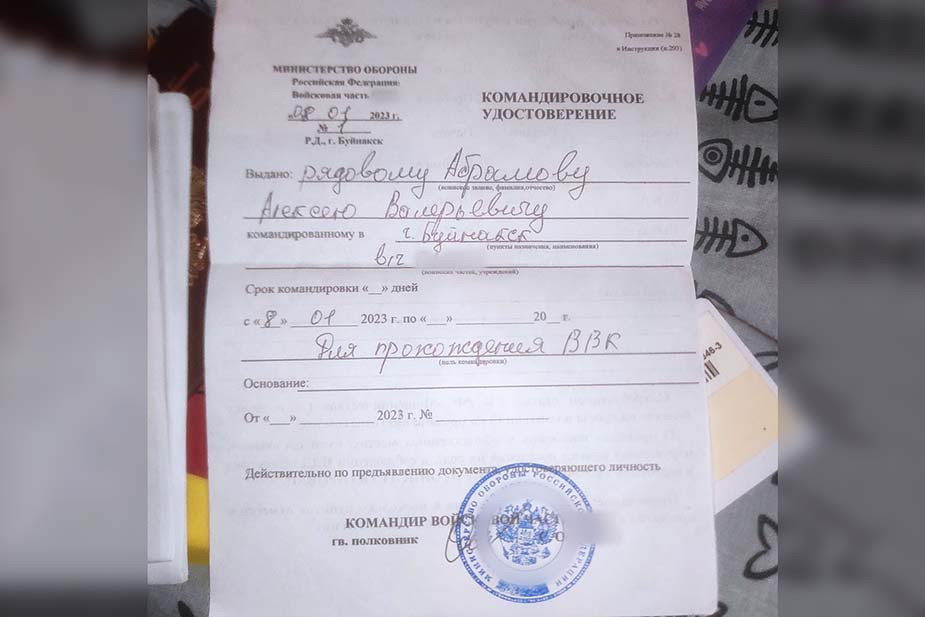 Приложение № 28
к Инструкции (п.293)
МИНИСТЕРСТВО ОБОРОНЫ
Российская Федерация
Войсковая часть
«08 01 2023 г.
№ 1
Р.Д., г. Буйнакск
КОМАНДИРОВОЧНОЕ
УДОСТОВЕРЕНИЕ
Выдано: рядовому Абрамову
(воинское звание, фамилия,отчество)
Алексею Валерьевичу
командированному в г. Буйнакск
(пункты назначения, наименования)
в/ч
(воинских частей, учреждений)
Срок командировки «__» дней
с «8» 01 2023 г. по «___» ____________20__ г.
Для прохождения ВВК
(цель командировки)
Основание:
От «___» ___________ 2023 г. № _________________
Действительно по предъявлению документа, удостоверяющего личность
КОМАНДИР ВОЙСКОВОЙ ЧАСТ
гв. полковник
МИНИСТЕРСТВО ОБОРОНЫ РОССИЙСКОЙ ФЕДЕРАЦИИ
46-3